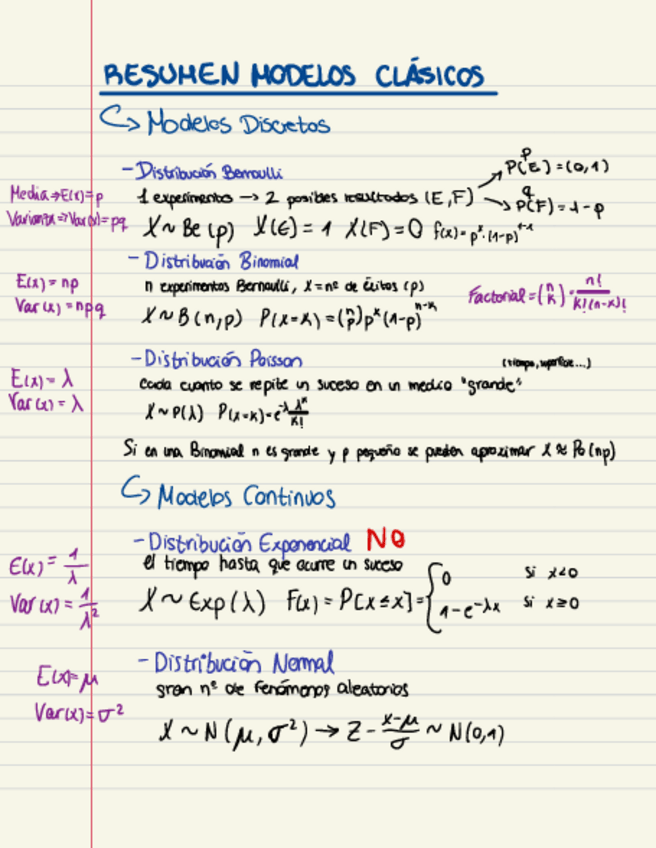 RESUMEN MODELOS CLÁSICOS
↳ Modelos Discretos
- Distribución Bernoulli
Media → E(x) = p
Varianza ⇒ Var(x) = pq
1 experimentos → 2 posibles resultados (E, F)
p
P(E) = (0,1)
q
P(F) = 1 - p
X ~ Be (p) X(E) = 1 X(F) = 0 f(x) = p^x · (1-p)^1-x
- Distribución Binomial
E(x) = np
Var (x) = npq
n experimentos Bernoulli, X = nº de éxitos (p)
X ~ B (n, p) P(X=K) = (n p) p^x (1-p)^n-x
Factorial = (n K) = n! / K!(n-x)!
- Distribución Poisson
E(x) = λ
Var (x) = λ
(tiempo, superficie...)
cada cuanto se repite un suceso en un medio "grande"
X ~ P(λ) P(X=K) = e^-λ λ^K / K!
Si en una Binomial n es grande y p pequeño se pueden aproximar X ≈ Po (np)
↳ Modelos Continuos
- Distribución Exponencial NO
E(x) = 1/λ
Var (x) = 1/λ²
el tiempo hasta que ocurre un suceso
X ~ Exp (λ) F(x) = P[X ≤ x] = { 0 si x<0
1 - e^-λx si x ≥ 0
- Distribución Normal
E(x) = μ
Var(x) = σ²
gran nº de fenómenos aleatorios
X ~ N (μ, σ²) → Z - x-μ / σ ~ N(0,1)